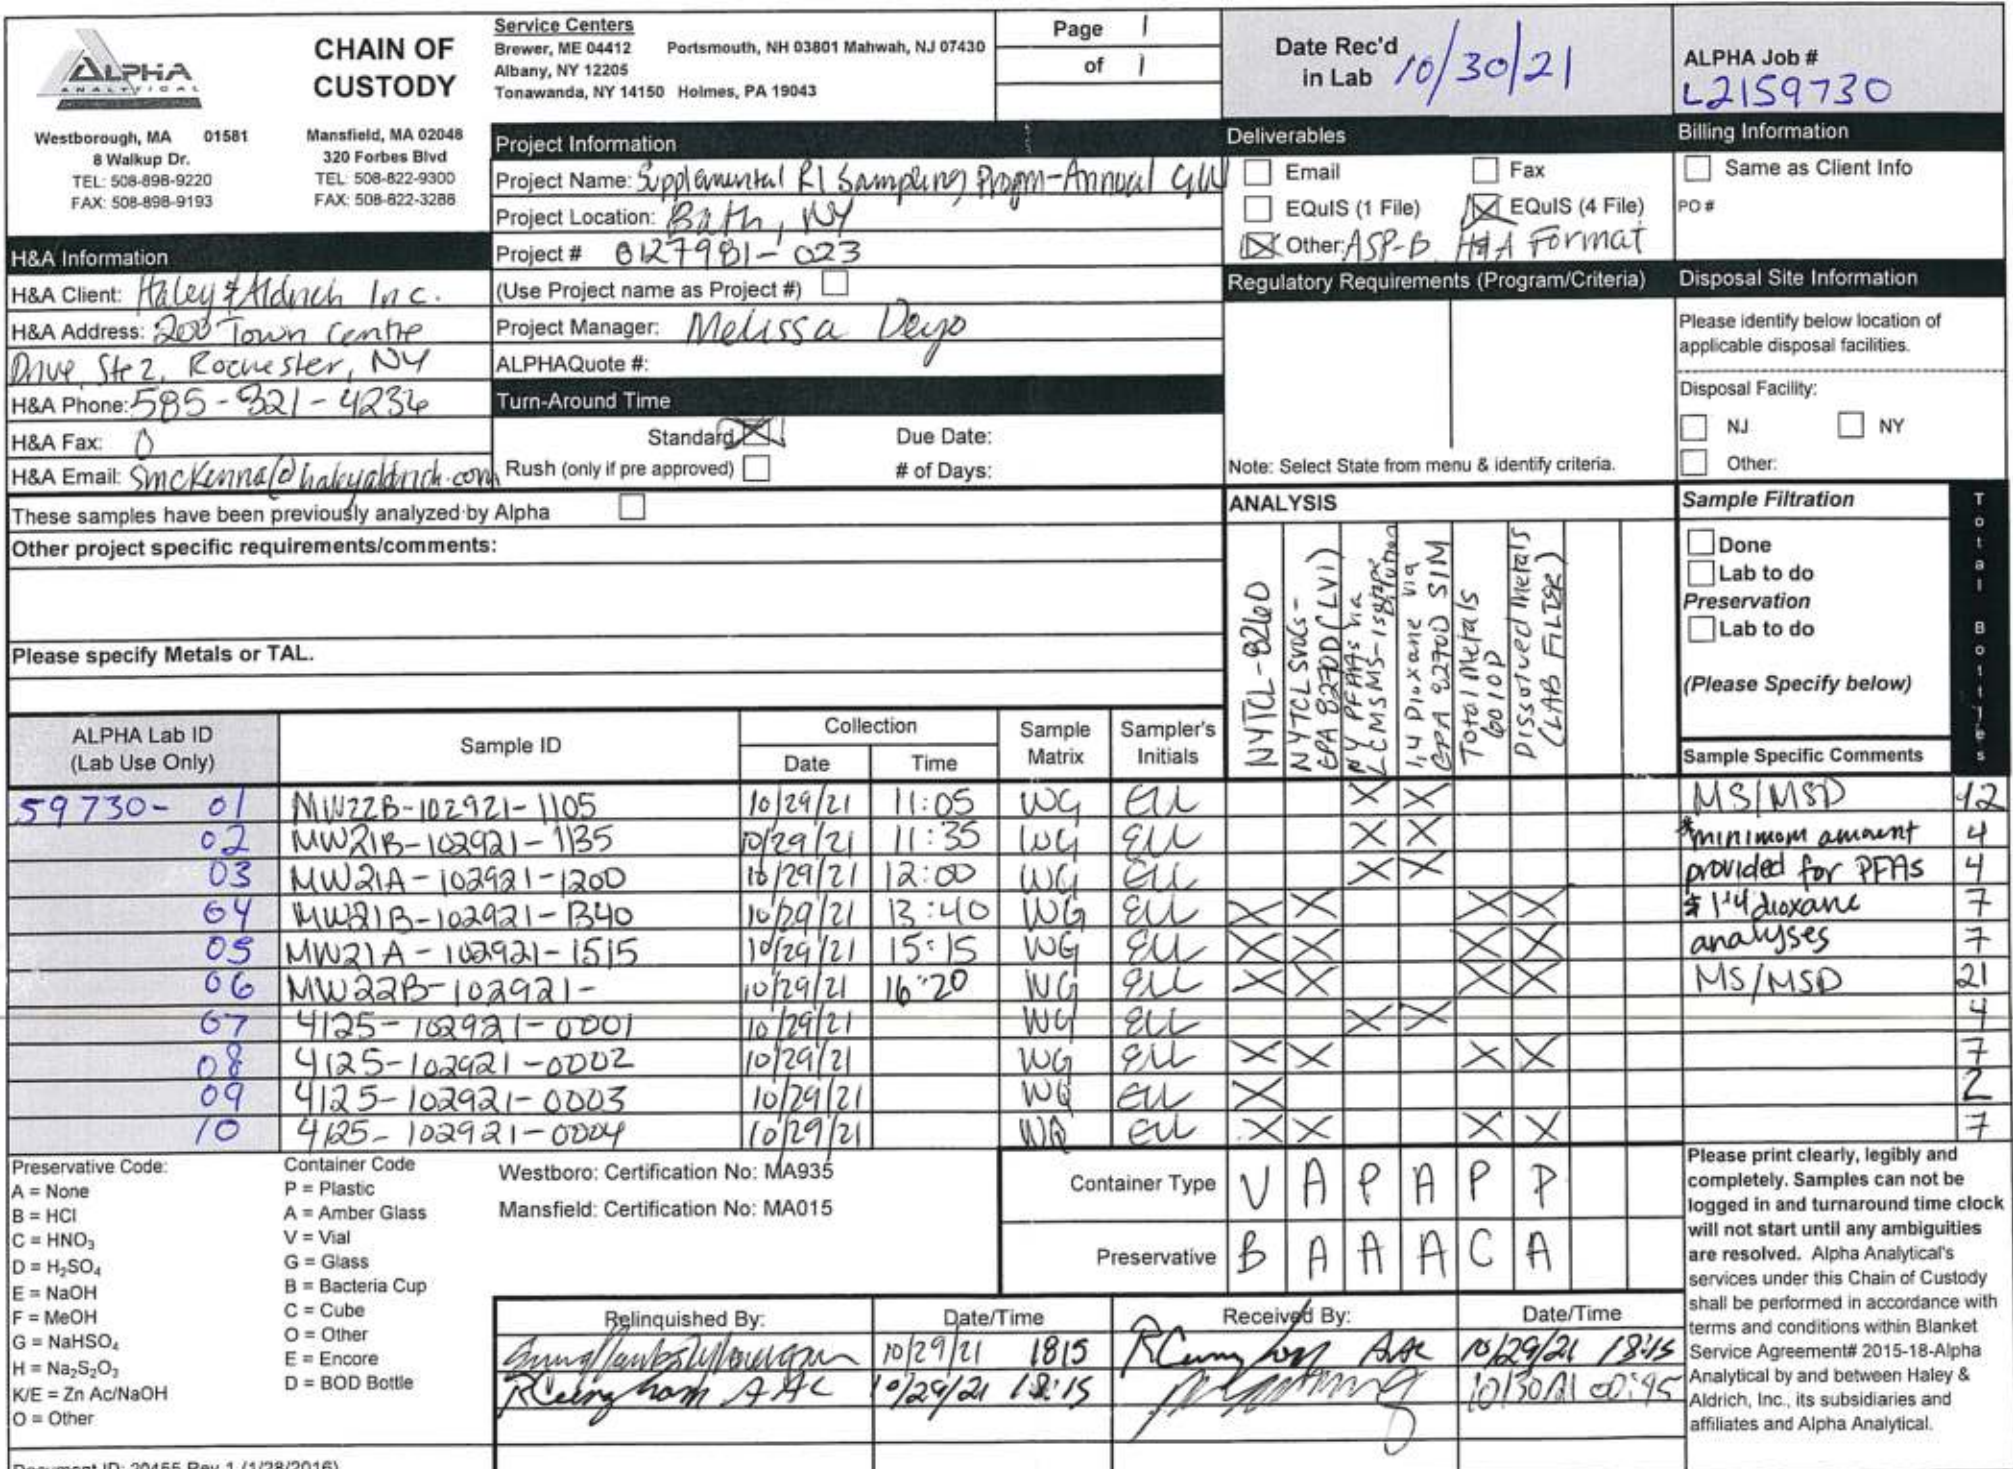 ALPHA
ANALYTICAL
CHAIN OF
CUSTODY
Westborough, MA 01581
8 Walkup Dr.
TEL: 508-898-9220
FAX: 508-898-9193
Mansfield, MA 02048
320 Forbes Blvd
TEL: 508-822-9300
FAX: 508-822-3288
Service Centers
Brewer, ME 04412 Portsmouth, NH 03801 Mahwah, NJ 07430
Albany, NY 12205
Tonawanda, NY 14150 Holmes, PA 19043
Page 1
of 1
Date Rec'd
in Lab 10/30/21
ALPHA Job #
L2159730
H&A Information
H&A Client: Haley & Aldrich Inc.
H&A Address: 200 Town Centre
Drive, Ste 2, Rochester, NY
H&A Phone: 585-321-4236
H&A Fax:
H&A Email: smckenna@haleyaldrich.com
Project Information
Project Name: Supplemental RI Sampling Progm-Annual GW
Project Location: Bath, NY
Project # 0127981-023
(Use Project name as Project #)
Project Manager: Melissa Deyo
ALPHAQuote #:
Turn-Around Time
Standard Due Date:
Rush (only if pre approved) # of Days:
Deliverables
Email Fax
EQuIS (1 File) EQuIS (4 File)
Other: ASP-B H&A Format
Regulatory Requirements (Program/Criteria)
Note: Select State from menu & identify criteria.
Billing Information
Same as Client Info
PO #
Disposal Site Information
Please identify below location of
applicable disposal facilities.
Disposal Facility:
NJ NY
Other:
These samples have been previously analyzed by Alpha
Other project specific requirements/comments:
Please specify Metals or TAL.
ANALYSIS
NYTCL-8260
NYTCLSVOCs-
EPA 8270D (LVI)
NY PFAAs via
LCMSMS-Isotope Dilution
1,4 Dioxane via
EPA 8270D SIM
Total Metals
6010D
Dissolved Metals
(LAB FILTER)
Sample Filtration
Done
Lab to do
Preservation
Lab to do
(Please Specify below)
Total Bottles
ALPHA Lab ID
(Lab Use Only)
Sample ID
Collection
Date Time
Sample
Matrix
Sampler's
Initials
Sample Specific Comments
59730-01 MW22B-102921-1105 10/29/21 11:05 WG ELL X X MS/MSD 12
02 MW21B-102921-1135 10/29/21 11:35 WG ELL X X *minimum amount 4
03 MW21A-102921-1200 10/29/21 12:00 WG ELL X X provided for PFAs 4
04 MW21B-102921-1340 10/29/21 13:40 WG ELL X X X X & 1,4 dioxane 7
05 MW21A-102921-1515 10/29/21 15:15 WG ELL X X X X analyses 7
06 MW22B-102921- 10/29/21 16:20 WG ELL X X X X MS/MSD 21
07 4125-102921-0001 10/29/21 WG ELL X X 4
08 4125-102921-0002 10/29/21 WG ELL X X X X 7
09 4125-102921-0003 10/29/21 WQ ELL X 2
10 4125-102921-0004 10/29/21 WQ ELL X X X X 7
Preservative Code:
A = None
B = HCl
C = HNO₃
D = H₂SO₄
E = NaOH
F = MeOH
G = NaHSO₄
H = Na₂S₂O₃
K/E = Zn Ac/NaOH
O = Other
Container Code
P = Plastic
A = Amber Glass
V = Vial
G = Glass
B = Bacteria Cup
C = Cube
O = Other
E = Encore
D = BOD Bottle
Westboro: Certification No: MA935
Mansfield: Certification No: MA015
Container Type V A P A P P
Preservative B A A A C A
Relinquished By: Date/Time Received By: Date/Time
10/29/21 1815 AAC 10/29/21 18:15
AAC 10/29/21 18:15 10/30/21
Please print clearly, legibly and
completely. Samples can not be
logged in and turnaround time clock
will not start until any ambiguities
are resolved. Alpha Analytical's
services under this Chain of Custody
shall be performed in accordance with
terms and conditions within Blanket
Service Agreement# 2015-18-Alpha
Analytical by and between Haley &
Aldrich, Inc., its subsidiaries and
affiliates and Alpha Analytical.
Document ID: 20455 Rev 1 (1/28/2016)